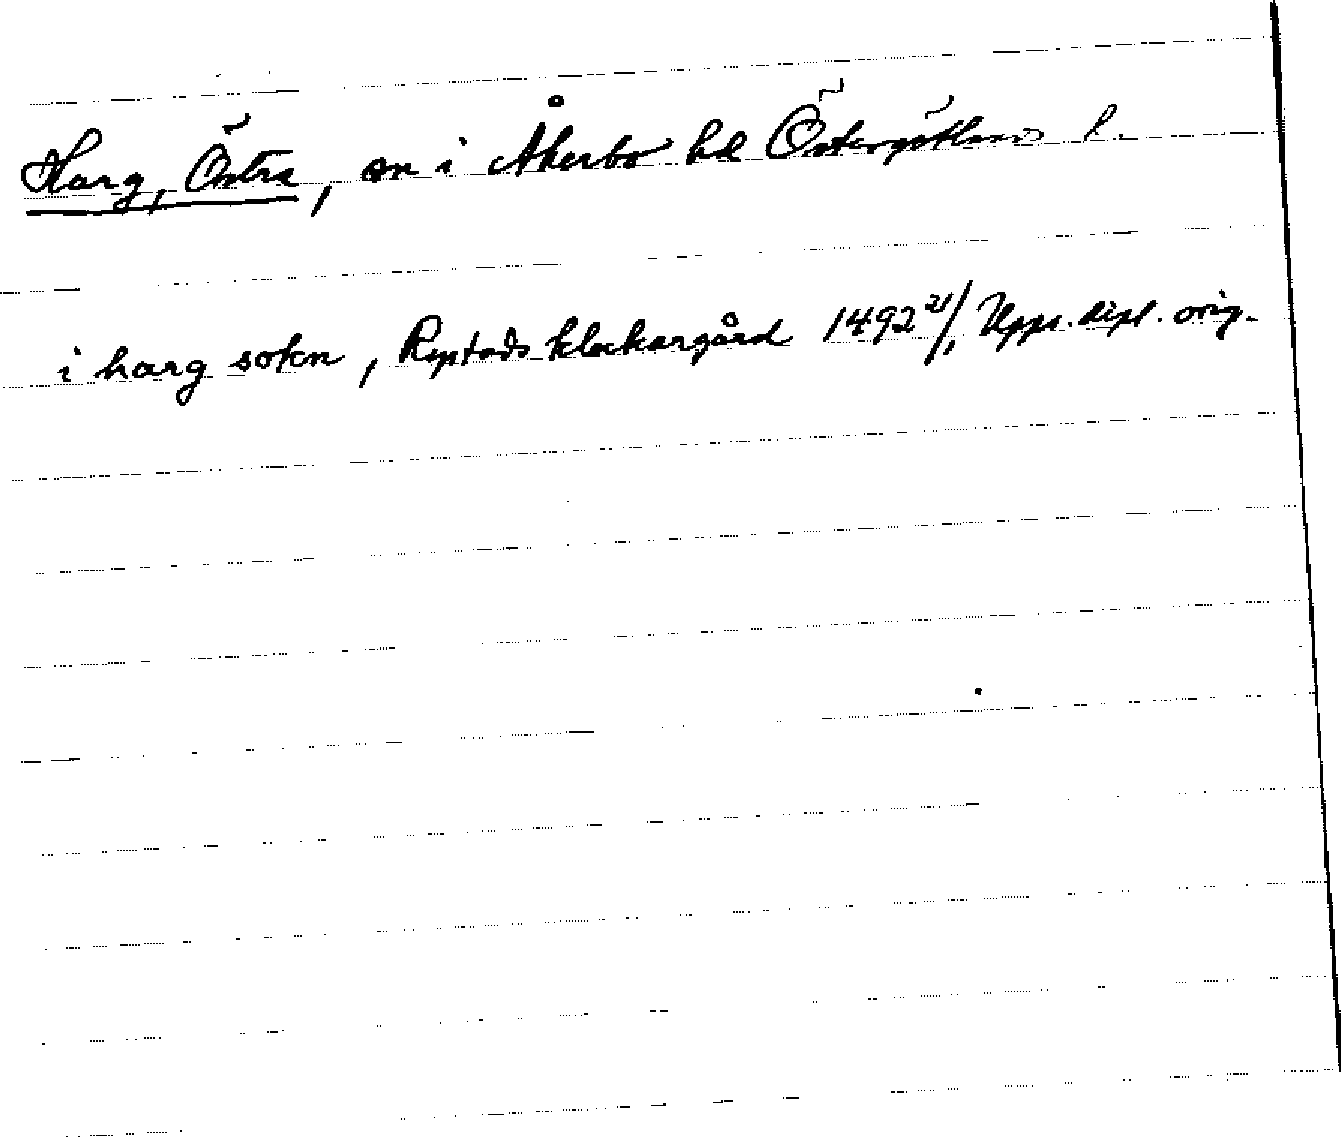 Harg, Östra, sn i Åkerbo hd Östergötlands l.
i harg sokn, Rystads klockargård 1492 21/1, Upps. dipl. orig.